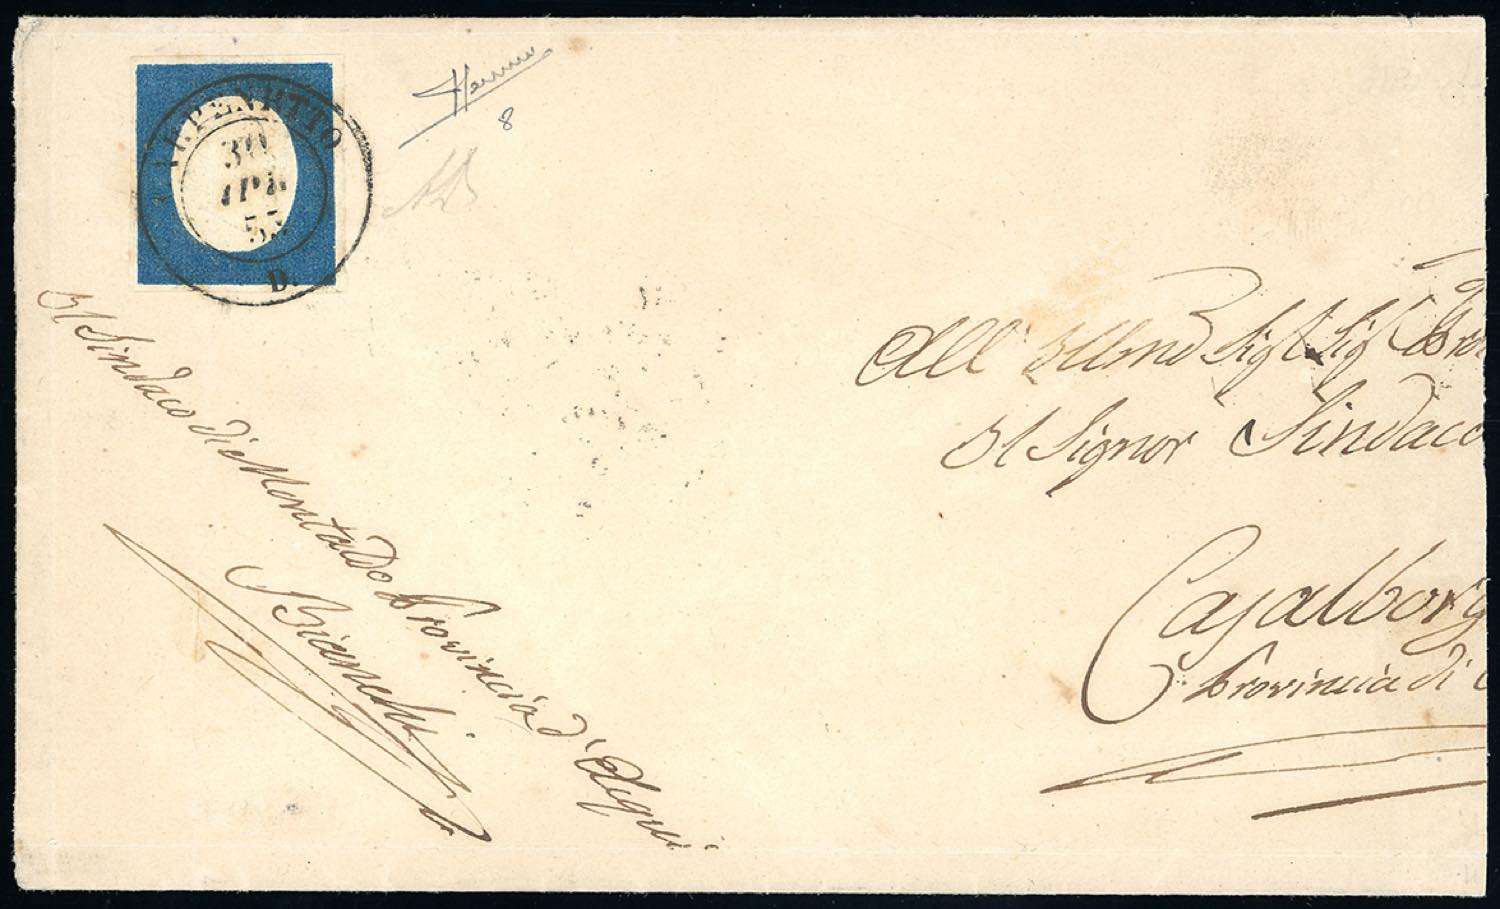 CARPENETO
30
APR
53
D.
8
AD
Il Sindaco di Montaldo Provincia d'Acqui
Bianchi
All' Illmo Sigr Sigr
Il Signor Sindaco
Casalborg
Provincia di